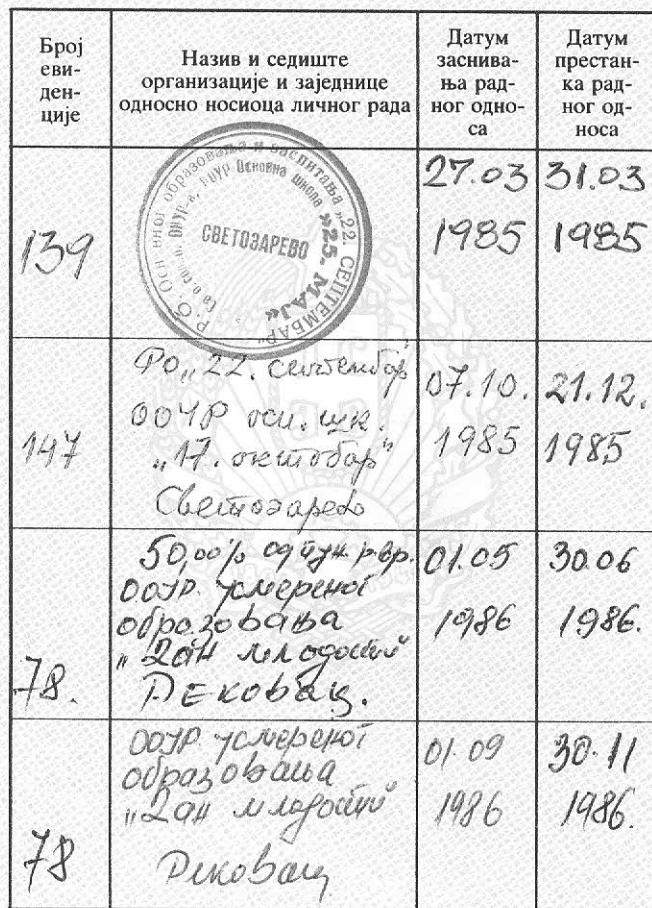 Број
еви-
ден-
ције
Назив и седиште
организације и заједнице
односно носиоца личног рада
Датум
заснива-
ња рад-
ног одно-
са
Датум
престан-
ка рад-
ног од-
носа
139
Р.О. Основног образовања и васпитања „22. СЕПТЕМБАР“
ООУР Основна школа »25. МАЈ«
СВЕТОЗАРЕВО
27.03
1985
31.03
1985
147
РО „22. септембар
ООУР осн. шк.
„17. октобар“
Светозарево
07.10.
1985
21.12.
1985
78.
50,00% од пун. р.вр.
ООУР усмереног
образовања
„Дан младости“
Рековац.
01.05
1986
30.06
1986.
78
ООУР усмереног
образовања
„Дан младости“
Рековац
01.09
1986
30.11
1986.